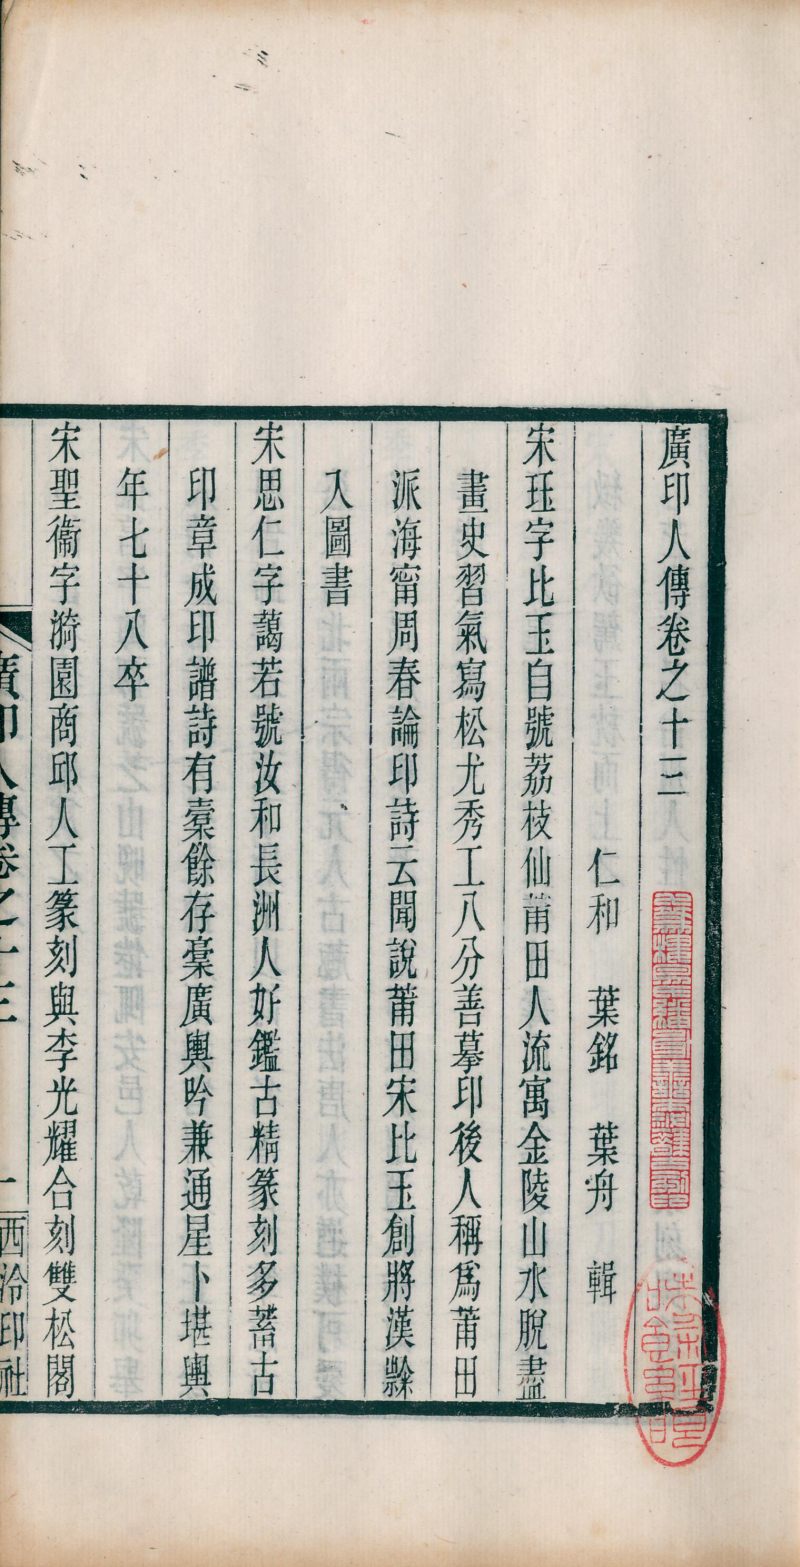 廣印人傳卷之十三
仁和 葉銘 葉舟 輯
宋珏字比玉自號荔枝仙莆田人流寓金陵山水脫盡
畫史習氣寫松尤秀工八分善摹印後人稱爲莆田
派海甯周春論印詩云聞說莆田宋比玉創將漢𨽻
入圖書
宋思仁字藹若號汝和長洲人好鑑古精篆刻多蓄古
印章成印譜詩有槖餘存槀廣輿吟兼通星卜堪輿
年七十八卒
宋聖衞字漪園商邱人工篆刻與李光耀合刻雙松閣
廣印人傳卷之十三 一 西泠印社